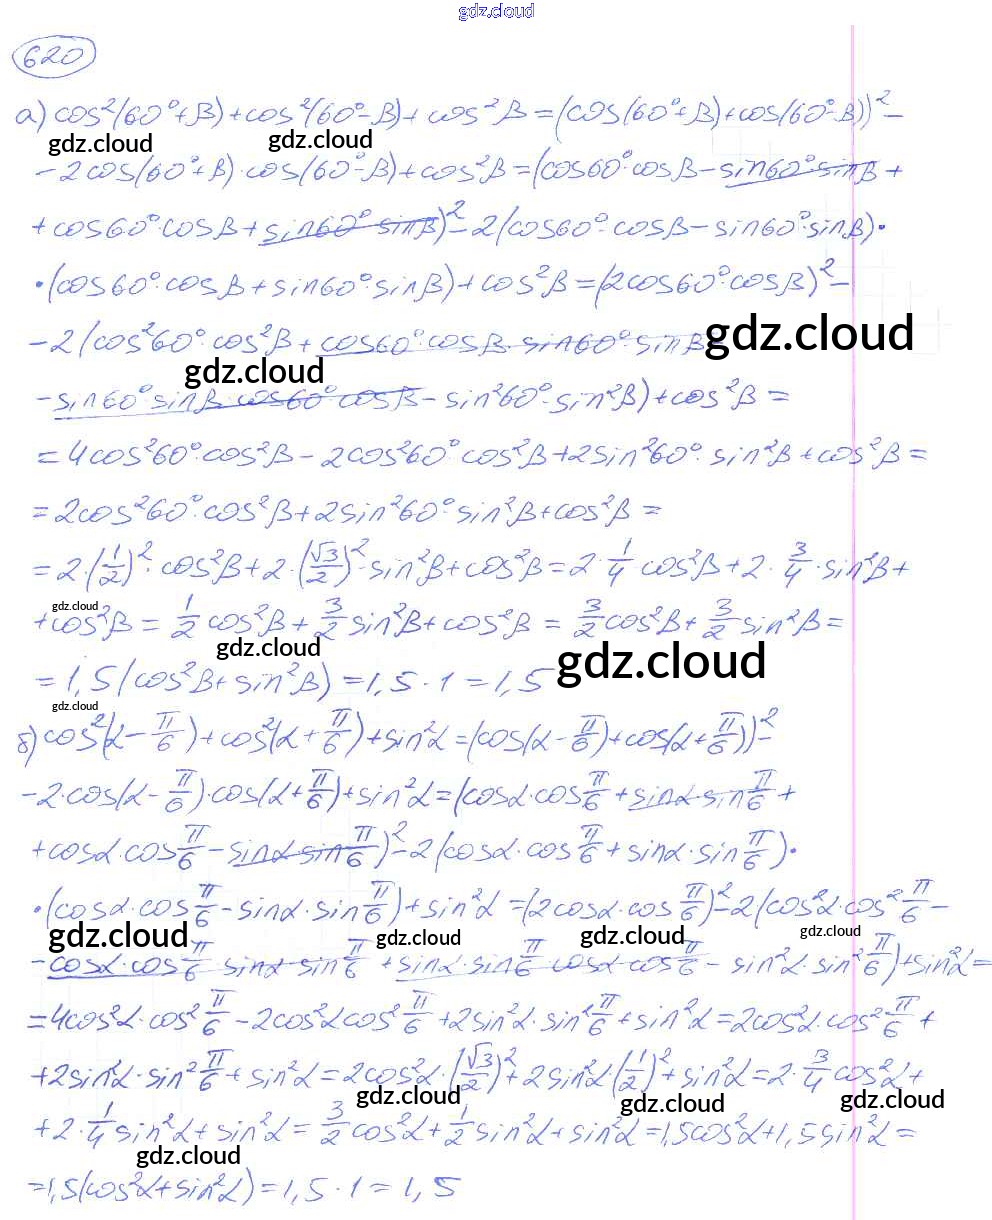 gdz.cloud
620
а) cos²(60°+β)+cos²(60°-β)+cos²β=(cos(60°+β)+cos(60°-β))²-
gdz.cloud gdz.cloud
-2cos(60°+β)·cos(60°-β)+cos²β=(cos60°·cosβ-sin60°·sinβ+
+cos60°·cosβ+sin60°·sinβ)²-2(cos60°·cosβ-sin60°·sinβ)·
·(cos60°·cosβ+sin60°·sinβ)+cos²β=(2cos60°·cosβ)²-
-2(cos²60°·cos²β+cos60°·cosβ·sin60°·sinβ gdz.cloud
gdz.cloud
-sin60°·sinβ·cos60°·cosβ-sin²60°·sin²β)+cos²β=
=4cos²60°·cos²β-2cos²60°·cos²β+2sin²60°·sin²β+cos²β=
=2cos²60°·cos²β+2sin²60°·sin²β+cos²β=
=2·(1/2)²·cos²β+2·(√3/2)²·sin²β+cos²β=2·1/4 cos²β+2·3/4·sin²β+
gdz.cloud
+cos²β=1/2 cos²β+3/2 sin²β+cos²β=3/2 cos²β+3/2 sin²β=
gdz.cloud gdz.cloud
=1,5(cos²β+sin²β)=1,5·1=1,5
gdz.cloud
б) cos²(α-π/6)+cos²(α+π/6)+sin²α=(cos(α-π/6)+cos(α+π/6))²-
-2·cos(α-π/6)·cos(α+π/6)+sin²α=(cosα·cosπ/6+sinα·sinπ/6+
+cosα·cosπ/6-sinα·sinπ/6)²-2(cosα·cosπ/6+sinα·sinπ/6)·
·(cosα·cosπ/6-sinα·sinπ/6)+sin²α=(2cosα·cosπ/6)²-2(cos²α·cos²π/6-
gdz.cloud gdz.cloud gdz.cloud gdz.cloud
-cosα·cosπ/6·sinα·sinπ/6+sinα·sinπ/6·cosα·cosπ/6-sin²α·sin²π/6)+sin²α=
=4cos²α·cos²π/6-2cos²αcos²π/6+2sin²α·sin²π/6+sin²α=2cos²α·cos²π/6+
+2sin²α·sin²π/6+sin²α=2cos²α·(√3/2)²+2sin²α(1/2)²+sin²α=2·3/4 cos²α+
gdz.cloud gdz.cloud gdz.cloud
+2·1/4 sin²α+sin²α=3/2 cos²α+1/2 sin²α+sin²α=1,5cos²α+1,5sin²α=
gdz.cloud
=1,5(cos²α+sin²α)=1,5·1=1,5